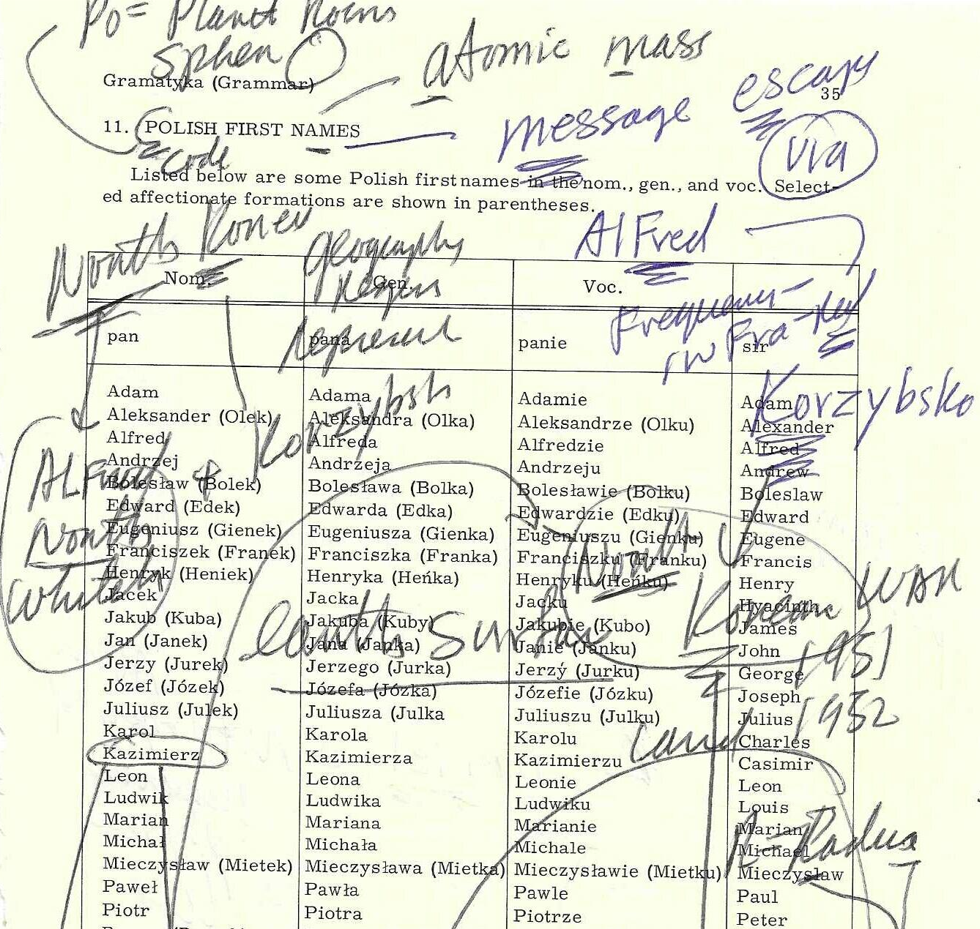 Po = Planet
atomic mass
Gramatyka (Grammar)
35
escape
11. POLISH FIRST NAMES
message
via
code
Listed below are some Polish first names in the nom., gen., and voc. Select-
ed affectionate formations are shown in parentheses.
North Korea
geography
AlFred
Nom. Gen. Voc.
Frequency
represent
pan pana panie sir
Korzybski
Adam Adama Adamie Adam
Aleksander (Olek) Aleksandra (Olka) Aleksandrze (Olku) Alexander
Alfred Alfreda Alfredzie Alfred
Andrzej Andrzeja Andrzeju Andrew
Bolesław (Bolek) Bolesława (Bolka) Bolesławie (Bolku) Boleslaw
Edward (Edek) Edwarda (Edka) Edwardzie (Edku) Edward
Eugeniusz (Gienek) Eugeniusza (Gienka) Eugeniuszu (Gienku) Eugene
Franciszek (Franek) Franciszka (Franka) Franciszku (Franku) Francis
Henryk (Heniek) Henryka (Heńka) Henryku (Heńku) Henry
Jacek Jacka Jacku Hyacinth
Jakub (Kuba) Jakuba (Kuby) Jakubie (Kubo) James
Jan (Janek) Jana (Janka) Janie (Janku) John
Jerzy (Jurek) Jerzego (Jurka) Jerzý (Jurku) George
Józef (Józek) Józefa (Józka) Józefie (Józku) Joseph
Juliusz (Julek) Juliusza (Julka Juliuszu (Julku) Julius
Karol Karola Karolu Charles
Kazimierz Kazimierza Kazimierzu Casimir
Leon Leona Leonie Leon
Ludwik Ludwika Ludwiku Louis
Marian Mariana Marianie Marian
Michał Michała Michale Michael
Mieczysław (Mietek) Mieczysława (Mietka) Mieczysławie (Mietku) Mieczyslaw
Paweł Pawła Pawle Paul
Piotr Piotra Piotrze Peter
ALFred
North
White
Korzybski
earth surface
Korean WAR
1951
1952
land
R = Radius